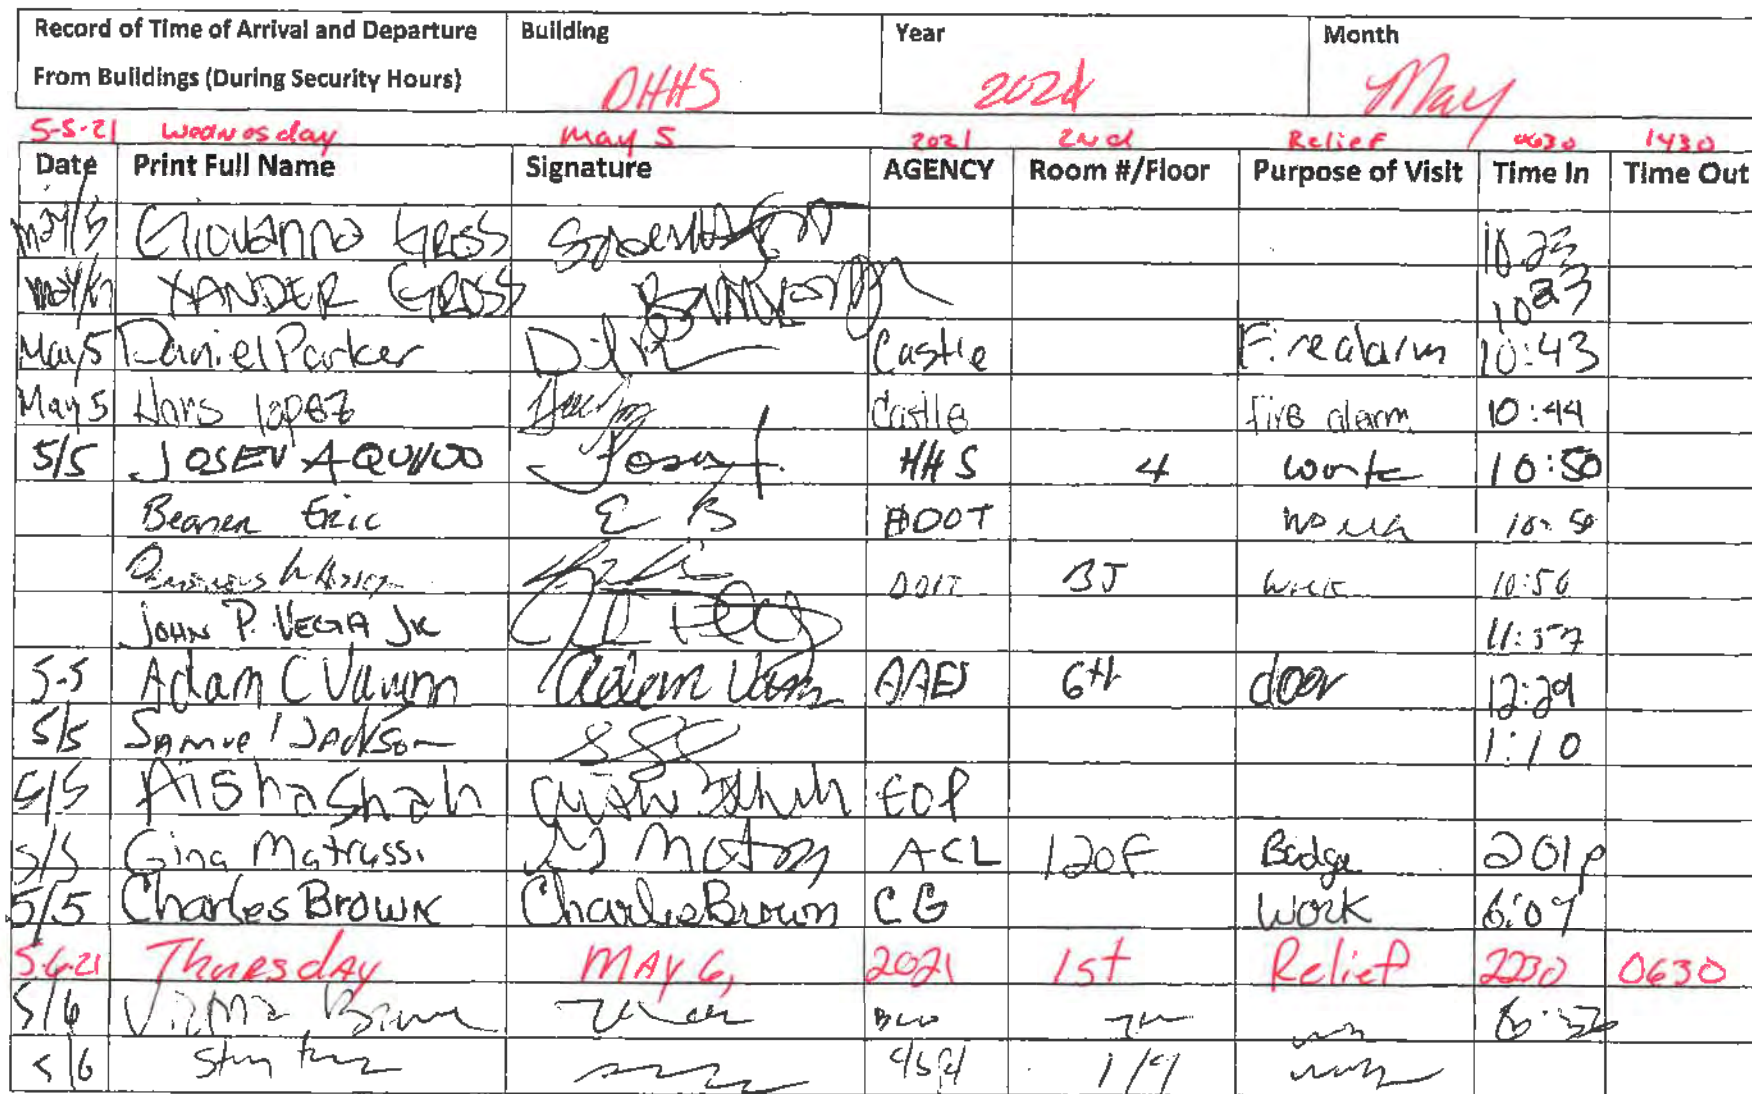 Record of Time of Arrival and Departure From Buildings (During Security Hours) Building DHHS Year 2021 Month May
5-5-21 Wednesday May 5 2021 2nd Relief 0630 1430
Date Print Full Name Signature AGENCY Room #/Floor Purpose of Visit Time In Time Out
May/5 Giovanna Gross 10 23
May/5 XANDER GROSS 1023
May 5 Daniel Parker Castle Fire alarm 10:43
May 5 Hans lopez Castle fire alarm 10:44
5/5 AQUINO HHS 4 work 10:50
Beamen Eric E B DOT 10:50
DOIT 3J work 10:50
JOHN P. VEGA JR 11:57
5-5 Adam C Adam 6th door 12:29
5/5 Samuel Jackson 1:10
5/5 Aisha Shah Aisha Shah EOP
5/5 Gina Matrassi ACL 120F Badge 201p
5/5 Charles Brown Charlie Brown CG Work 6:07
5-6-21 Thursday MAY 6, 2021 1st Relief 2230 0630
5/6
5/6